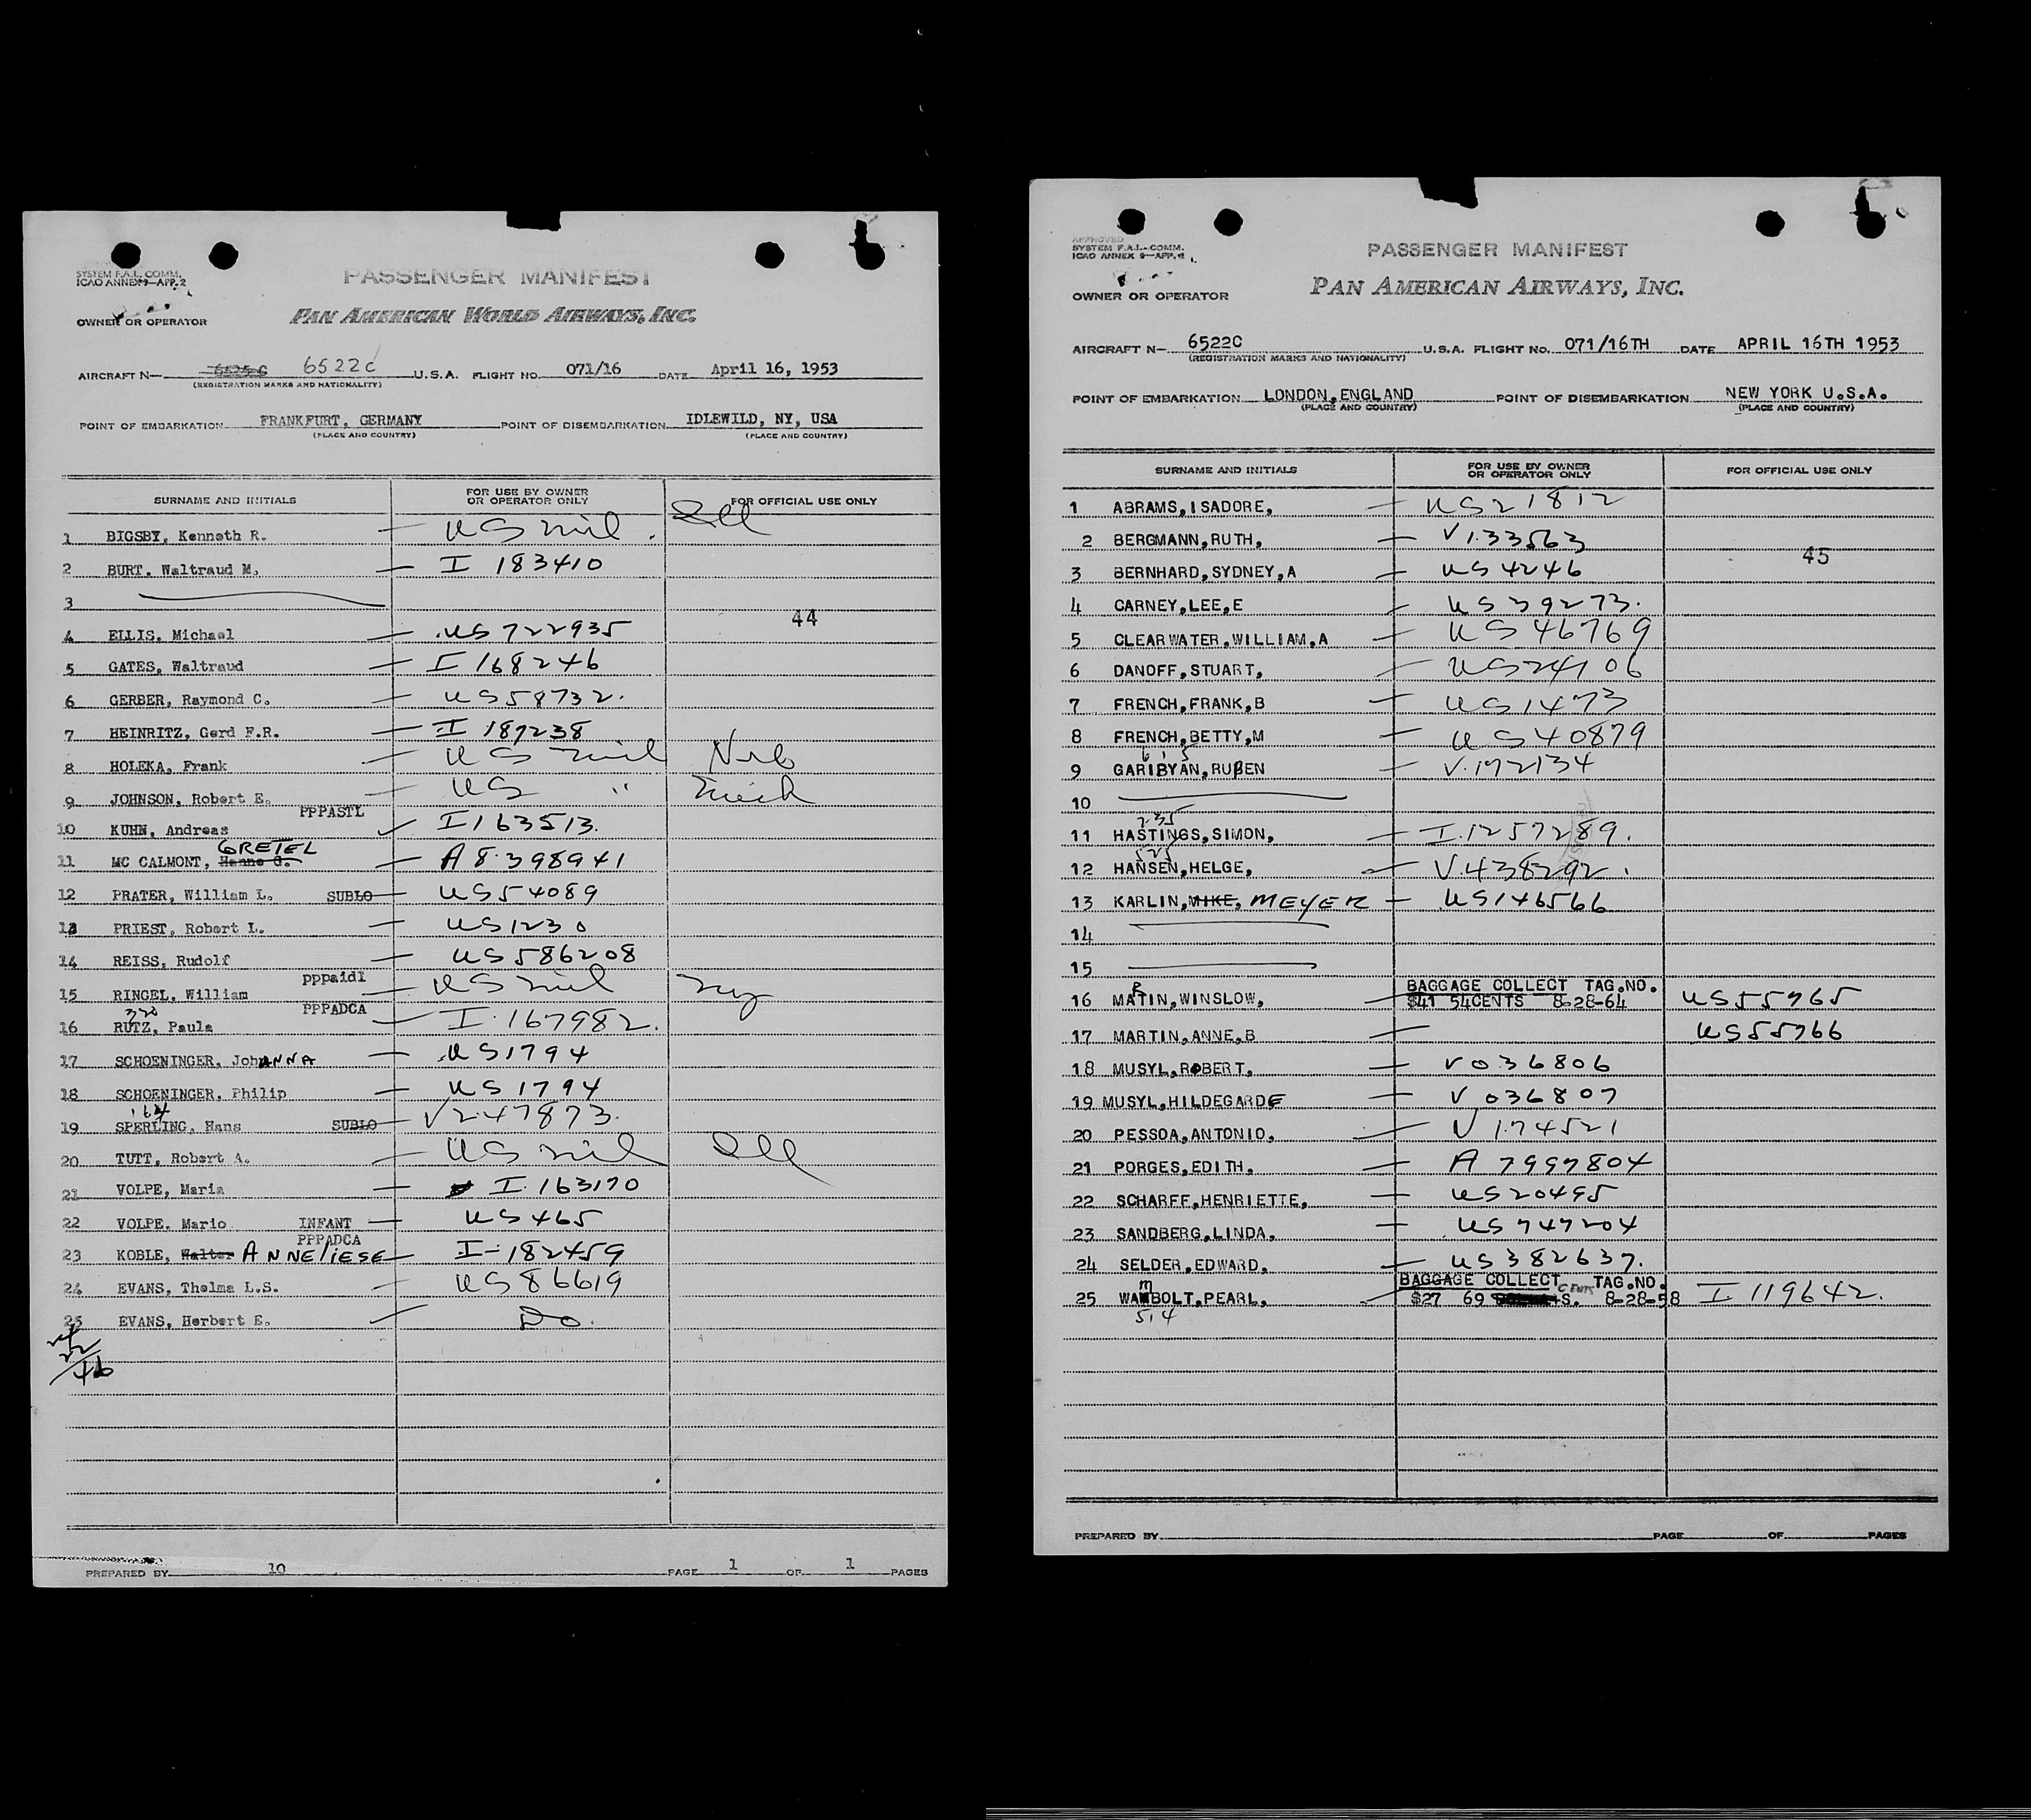 SYSTEM F.A.L. COMM.
ICAO ANNEX 9—APP. 2
PASSENGER MANIFEST
OWNER OR OPERATOR
PAN AMERICAN WORLD AIRWAYS, INC.
AIRCRAFT N— 6522C U.S.A. FLIGHT NO. 071/16 DATE April 16, 1953
(REGISTRATION MARKS AND NATIONALITY)
POINT OF EMBARKATION FRANKFURT, GERMANY POINT OF DISEMBARKATION IDLEWILD, NY, USA
(PLACE AND COUNTRY) (PLACE AND COUNTRY)
SURNAME AND INITIALS FOR USE BY OWNER OR OPERATOR ONLY FOR OFFICIAL USE ONLY
1 BIGSBY, Kenneth R. — US mil. Ill
2 BURT, Waltraud M. — I 183410
3
44
4 ELLIS, Michael — US 722935
5 GATES, Waltraud — I 168246
6 GERBER, Raymond C. — US 58732.
7 HEINRITZ, Gerd F.R. — I 189238
8 HOLEKA, Frank — US mil Neb
9 JOHNSON, Robert E. — US " Mich
PPPASTL
10 KUHN, Andreas I 163513.
GRETEL
11 MC CALMONT, Hanne G. — A 8.398941
12 PRATER, William L. SUBLO — US 54089
13 PRIEST, Robert L. — US 1230
14 REISS, Rudolf — US 586208
pppaidl
15 RINGEL, William — US mil NY
320 PPPADCA
16 RUTZ, Paula — I.167982.
17 SCHOENINGER, JohANNA — US 1794
18 SCHOENINGER, Philip — US 1794
164
19 SPERLING, Hans SUBLO — V2.47873.
20 TUTT, Robert A. — US mil Ill
21 VOLPE, Maria — I.163170
22 VOLPE, Mario INFANT — US 465
PPPADCA
23 KOBLE, Walter ANNELIESE — I-182459
24 EVANS, Thelma L.S. — US 86619
25 EVANS, Herbert E. — Do.
24
22
46
PREPARED BY 10 PAGE 1 OF 1 PAGES
APPROVED
SYSTEM F.A.L. COMM.
ICAO ANNEX 9—APP. 2
PASSENGER MANIFEST
OWNER OR OPERATOR
PAN AMERICAN AIRWAYS, INC.
AIRCRAFT N— 6522C U.S.A. FLIGHT NO. 071/16TH DATE APRIL 16TH 1953
(REGISTRATION MARKS AND NATIONALITY)
POINT OF EMBARKATION LONDON, ENGLAND POINT OF DISEMBARKATION NEW YORK U.S.A.
(PLACE AND COUNTRY) (PLACE AND COUNTRY)
SURNAME AND INITIALS FOR USE BY OWNER OR OPERATOR ONLY FOR OFFICIAL USE ONLY
1 ABRAMS, ISADORE, — US 21812
2 BERGMANN, RUTH, — V1.33563
45
3 BERNHARD, SYDNEY, A — US 4246
4 CARNEY, LEE, E — US 39273.
5 CLEARWATER, WILLIAM, A — US 46769
6 DANOFF, STUART, — US 24106
7 FRENCH, FRANK, B — US 1473
8 FRENCH, BETTY, M — US 40879
615
9 GARIBYAN, RUBEN — V.172134
10
235
11 HASTINGS, SIMON, — I.1257289.
525
12 HANSEN, HELGE, — V.438292.
13 KARLIN, MIKE, MEYER — US 146566
14
15
R BAGGAGE COLLECT TAG.NO.
16 MATIN, WINSLOW, — $41 54CENTS 8-28-64 US 55765
17 MARTIN, ANNE, B — US 55766
18 MUSYL, ROBERT, — V 036806
19 MUSYL, HILDEGARDE — V 036807
20 PESSOA, ANTONIO, — V 1.74521
21 PORGES, EDITH, — A 7997804
22 SCHARFF, HENRIETTE, — US 20495
23 SANDBERG, LINDA, — US 747204
24 SELDER, EDWARD, — US 382637.
m BAGGAGE COLLECT TAG.NO.
25 WAMBOLT, PEARL, — $27 69 S. 8-28-58 I 119642.
514
PREPARED BY PAGE OF PAGES